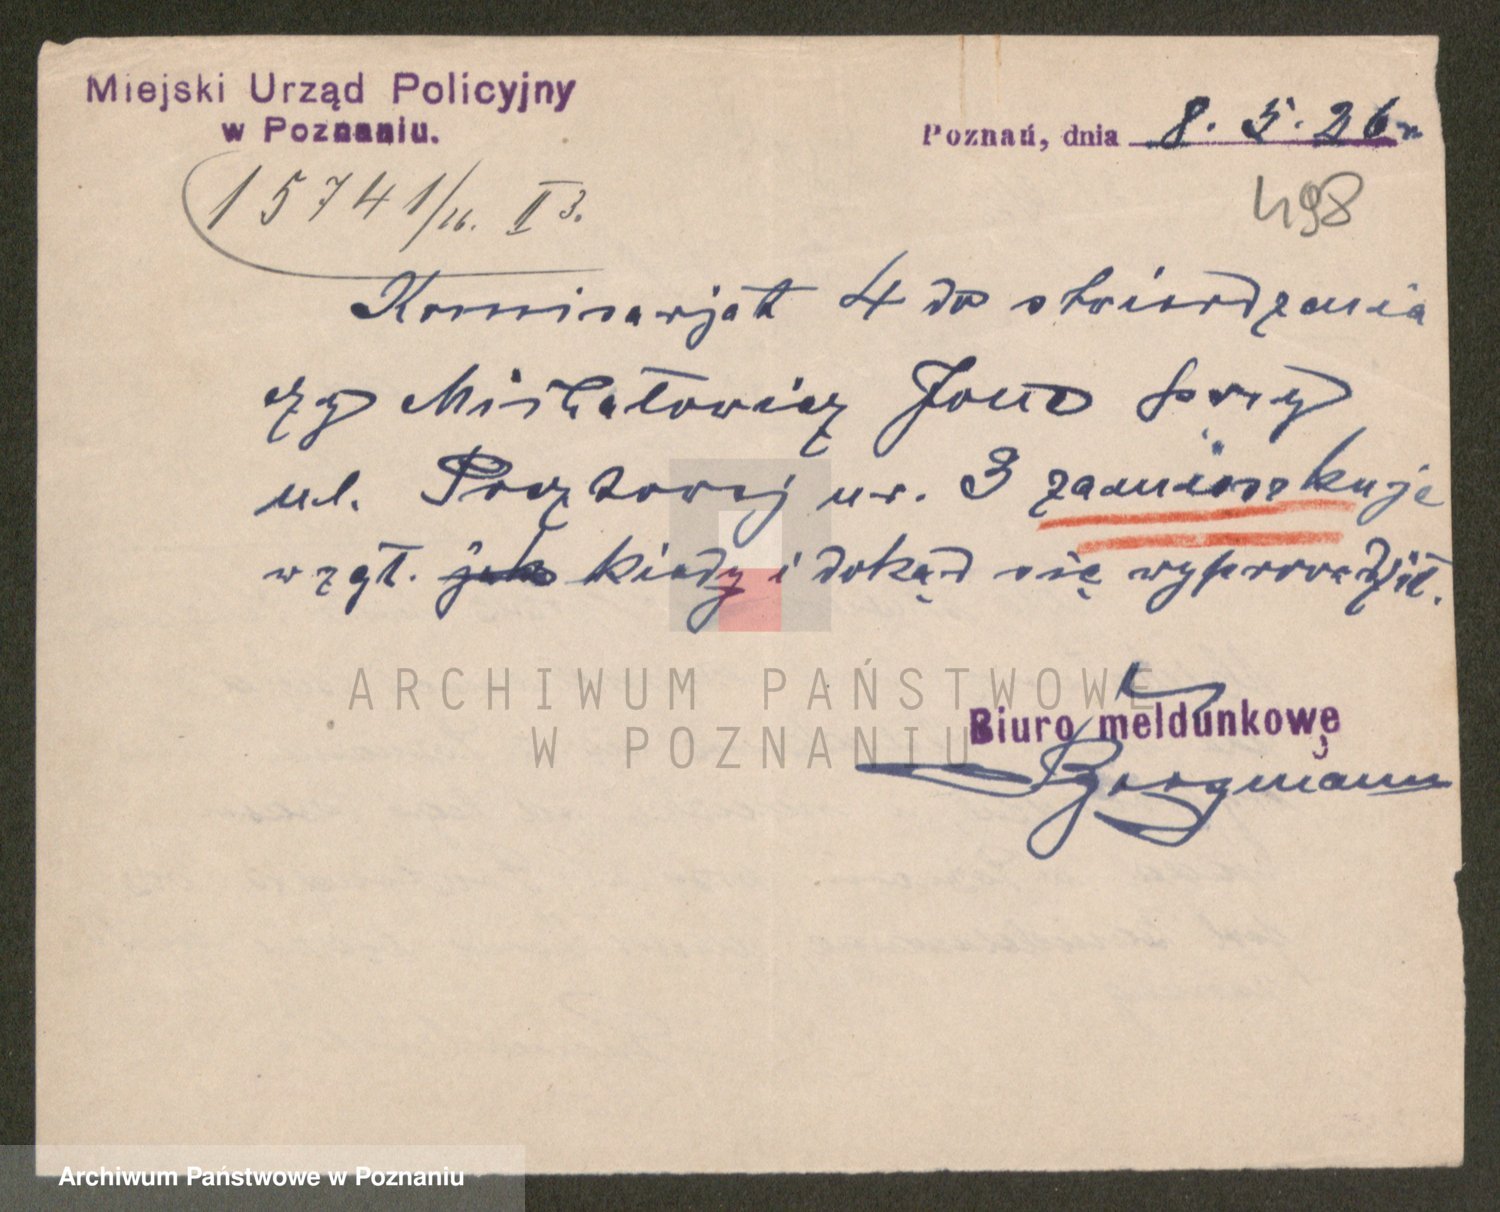 Miejski Urząd Policyjny
w Poznaniu.
Poznań, dnia 8. 5. 26 r.
15741/26. II 3.
498
Komisarjat 4 do stwierdzenia
czy Michałowicz Jono przy
ul. Pocztowej nr. 3 zamieszkuje
wzgl. jak kiedy i dokąd się wyprowadził.
ARCHIWUM PAŃSTWOWE
W POZNANIU
Biuro meldunkowe
Archiwum Państwowe w Poznaniu